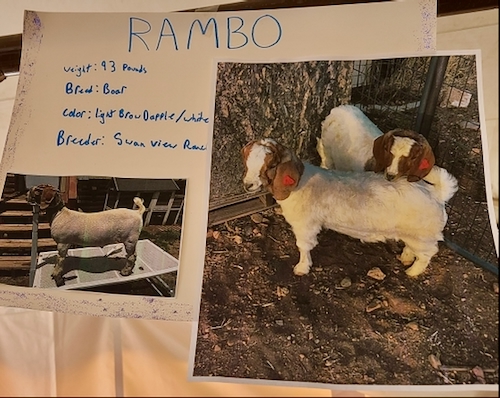 RAMBO
weight: 93 Pounds
Breed: Boar
color: light Brow Dapple/white
Breeder: Swan View Ranc